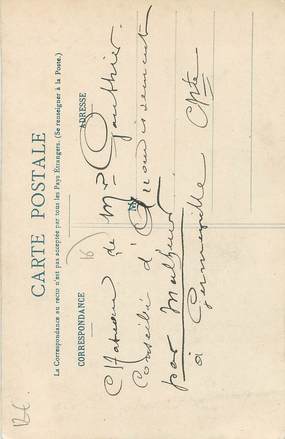 CARTE POSTALE
La Correspondance au recto n'est pas acceptée par tous les Pays Étrangers. (Se renseigner à la Poste.)
CORRESPONDANCE
ADRESSE
M
16
Château de Mr Gauthier
Conseiller d'Arrondissement
par
à Germerville Cpte
12€